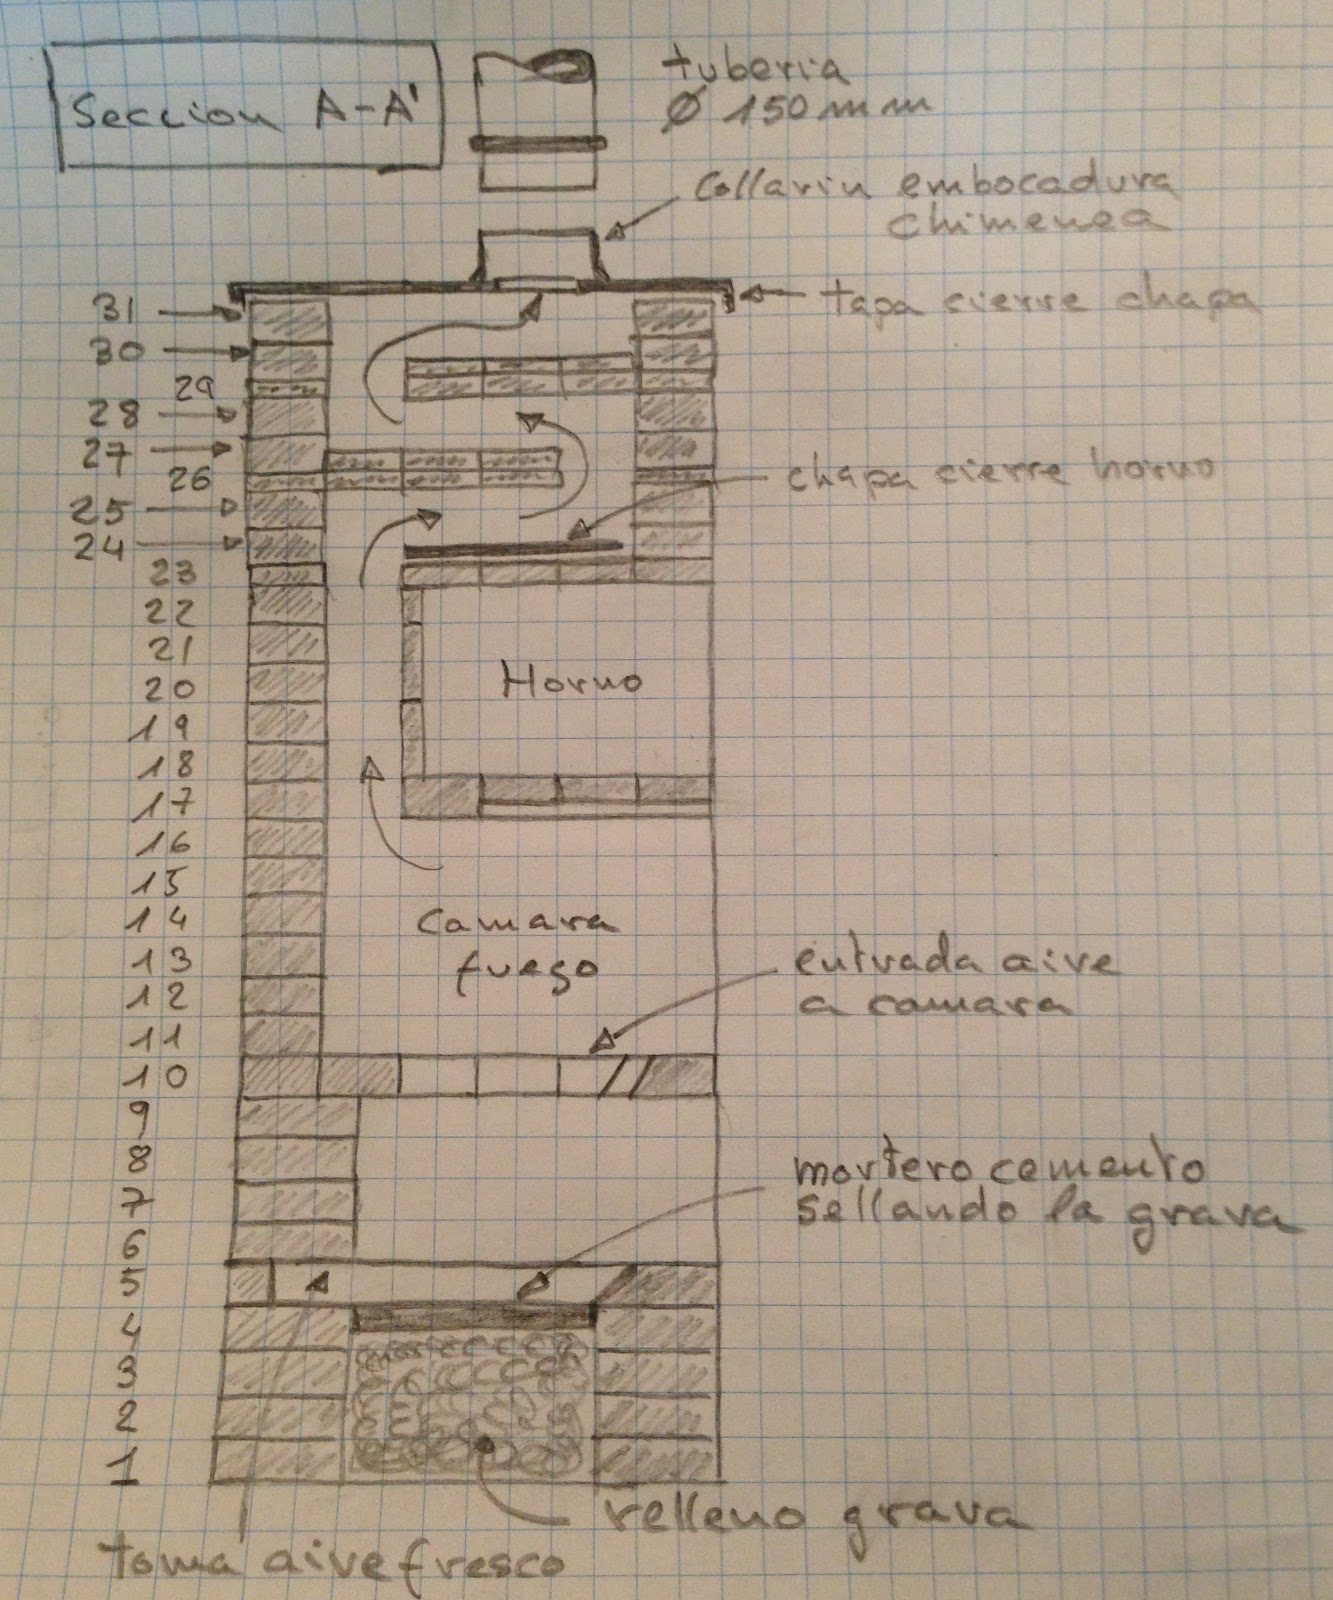 Seccion A-A'
tuberia
Ø 150mm
Collarin embocadura
chimenea
tapa cierre chapa
31
30
29
28
27
26
25
24
23
22
21
20
19
18
17
16
15
14
13
12
11
10
9
8
7
6
5
4
3
2
1
chapa cierre horno
Horno
Camara
fuego
entrada aire
a camara
mortero cemento
sellando la grava
relleno grava
toma aire fresco